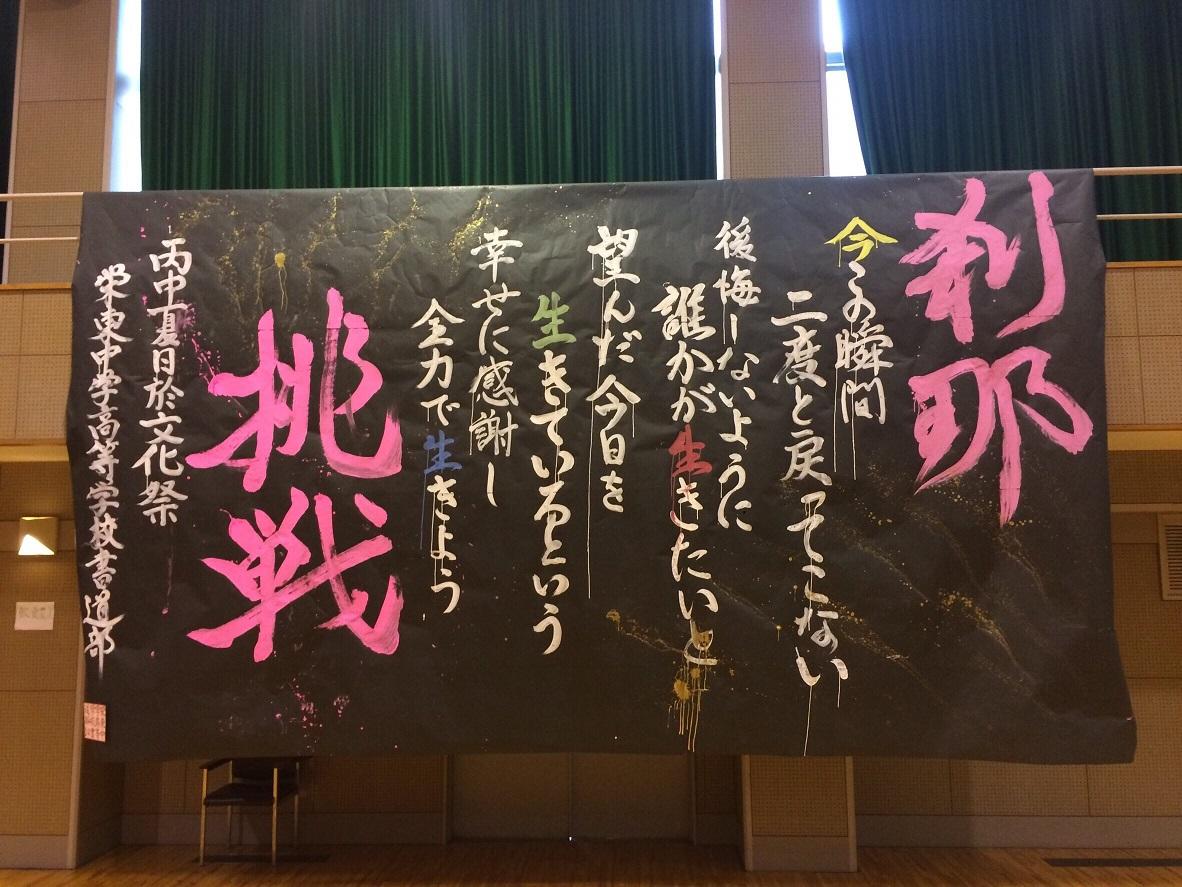 刹那
今この瞬間
二度と戻ってこない
後悔しないように
誰かが生きたいと
望んだ今日を
生きているという
幸せに感謝し
全力で生きよう
挑戦
丙申夏日於文化祭
栄東中学高等学校書道部